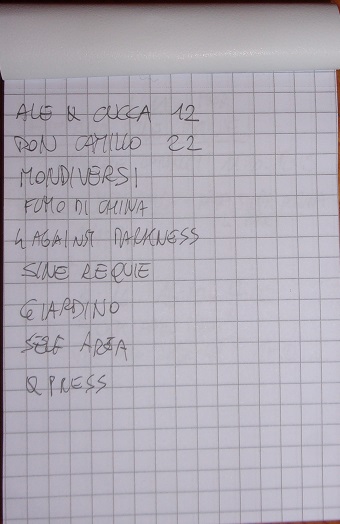 ALE & CUCCA 12
DON CAMILLO 22
MONDIVERSI
FUMO DI CHINA
4 AGAINST DARKNESS
SINE REQUIE
GIARDINO
AREA
Q PRESS